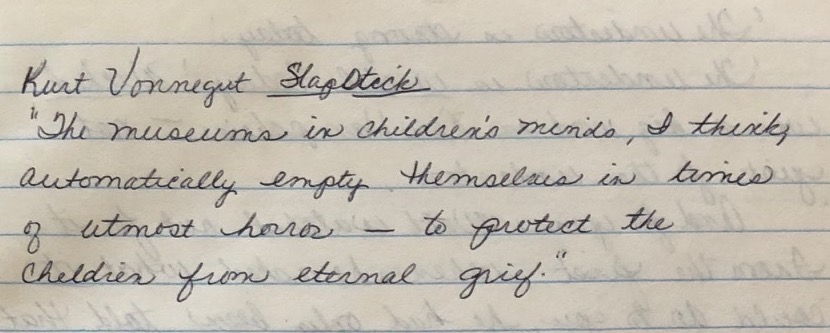 Kurt Vonnegut Slapstick
"The museums in children's minds, I think,
automatically empty themselves in times
of utmost horror — to protect the
children from eternal grief."